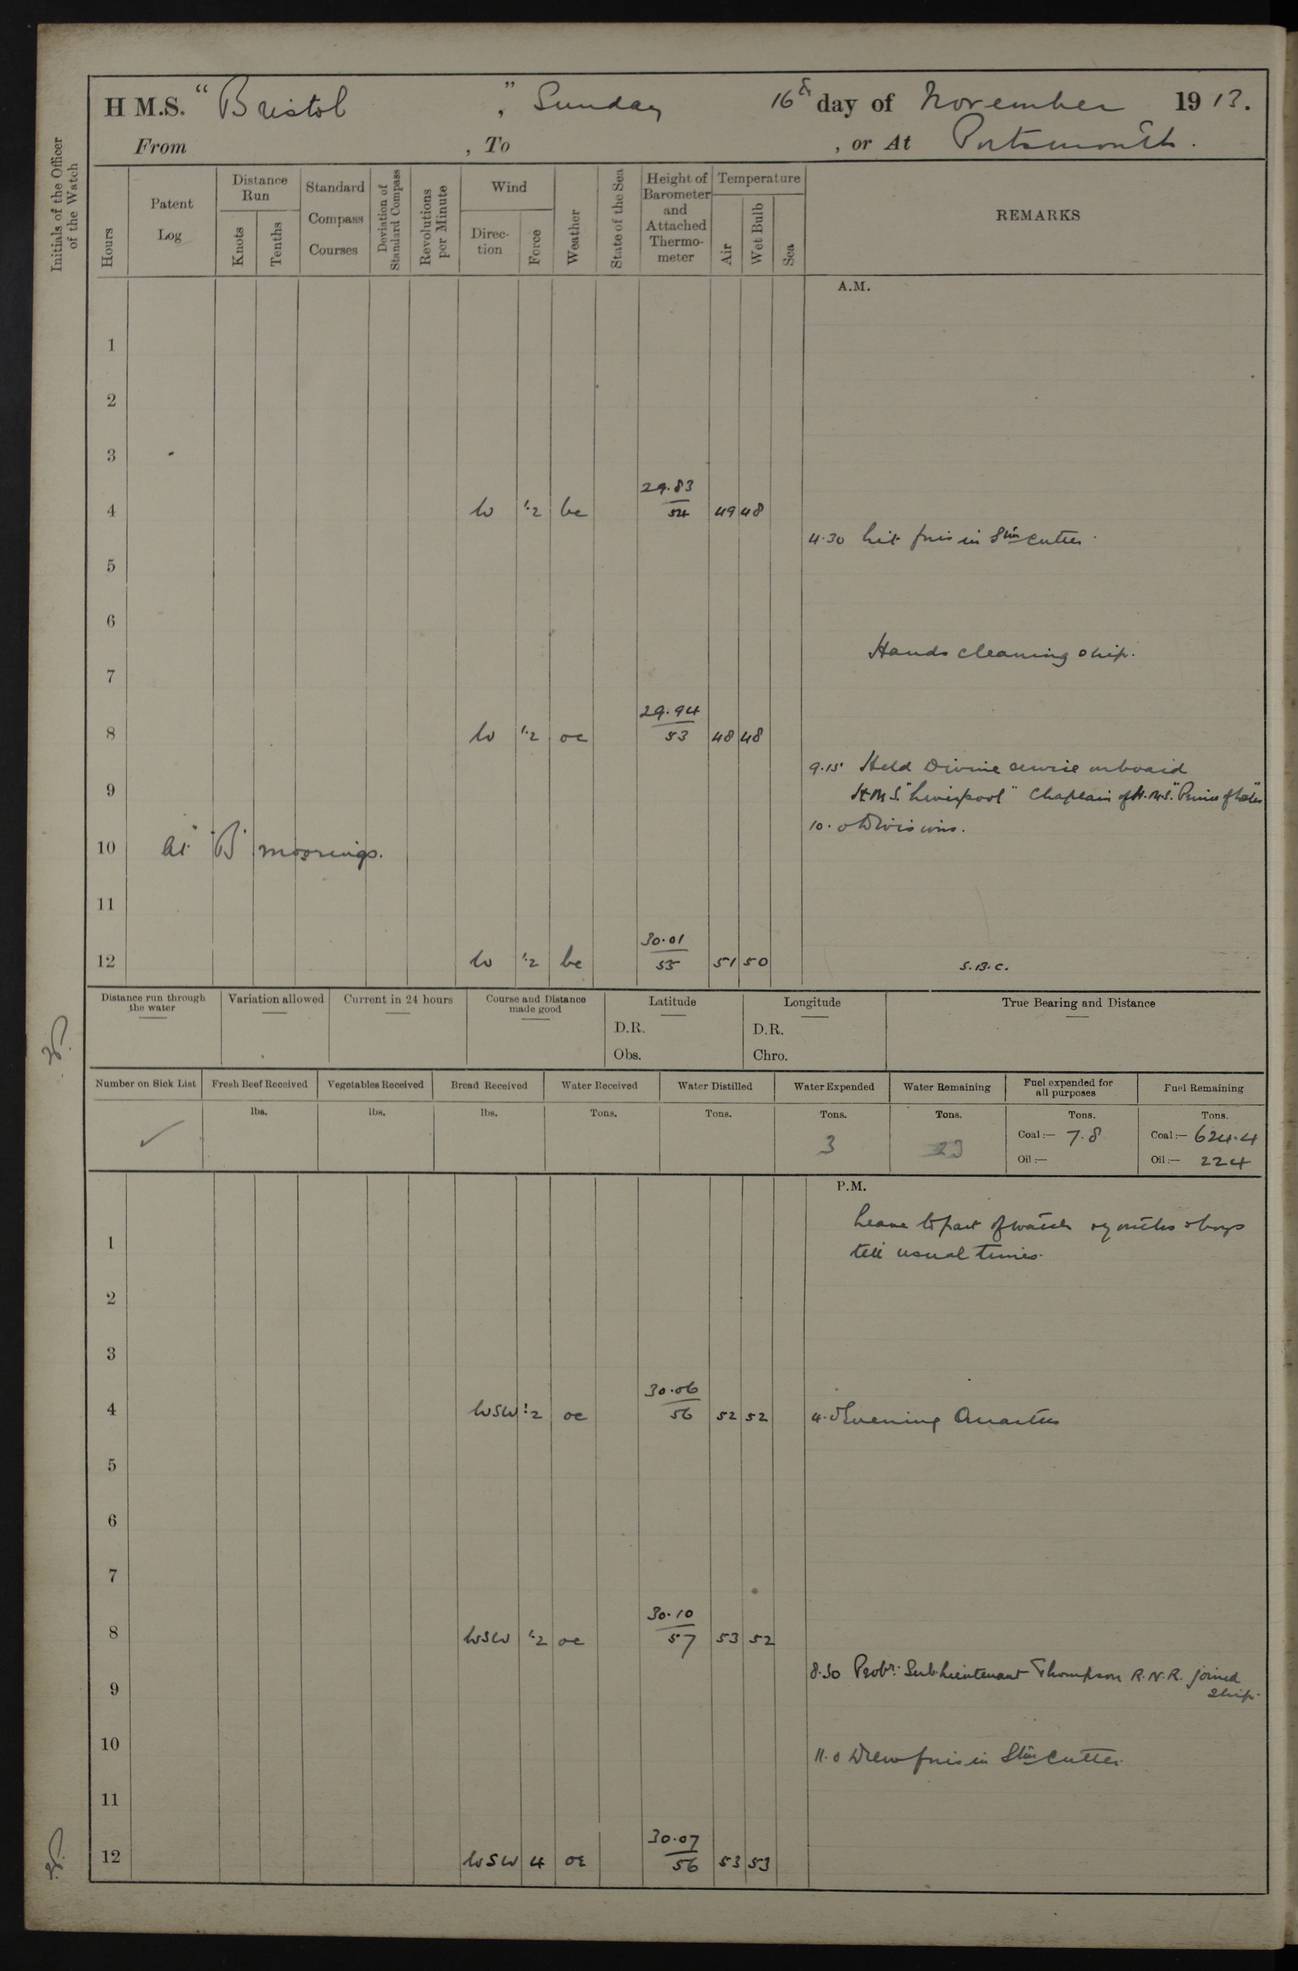 H M.S. "Bristol", Sunday 16th day of November 1913.
From , To , or At Portsmouth.
Initials of the Officer of the Watch
Hours
Patent Log
Distance Run
Knots
Tenths
Standard Compass Courses
Deviation of Standard Compass
Revolutions per Minute
Wind
Direction
Force
Weather
State of the Sea
Height of Barometer and Attached Thermometer
Temperature
Air
Wet Bulb
Sea
REMARKS
A.M.
1
2
3
4 W 1.2 bc 29.83 54 49 48
4.30 Lit fires in Stm cutter.
5
6
Hands cleaning ship.
7
8 W 1.2 oc 29.94 53 48 48
9.15 Held Divine service onboard
9 H.M.S. "Liverpool" Chaplain of H.M.S. "Prince of Wales"
10.0 Divisions.
10 At 'B' moorings.
11
12 W 1.2 bc 30.01 55 51 50
S.B.C.
Distance run through the water
Variation allowed
Current in 24 hours
Course and Distance made good
Latitude
D.R.
Obs.
Longitude
D.R.
Chro.
True Bearing and Distance
Number on Sick List
Fresh Beef Received
Vegetables Received
Bread Received
Water Received
Water Distilled
Water Expended
Water Remaining
Fuel expended for all purposes
Fuel Remaining
lbs. lbs. lbs. Tons. Tons. Tons. Tons. Tons. Tons.
3
Coal:— 7.8 Coal:— 624.4
Oil:— Oil:— 224
P.M.
Leave to part of watch & boys
till usual times.
1
2
3
4 WSW 1.2 oc 30.06 56 52 52 4.0 Evening Quarters
5
6
7
8 WSW 1.2 oc 30.10 57 53 52
8.30 Proby. Sub Lieutenant Thompson R.N.R. joined
ship.
9
10
11.0 Drew fires in Stm cutter.
11
12 WSW 4 oc 30.07 56 53 53